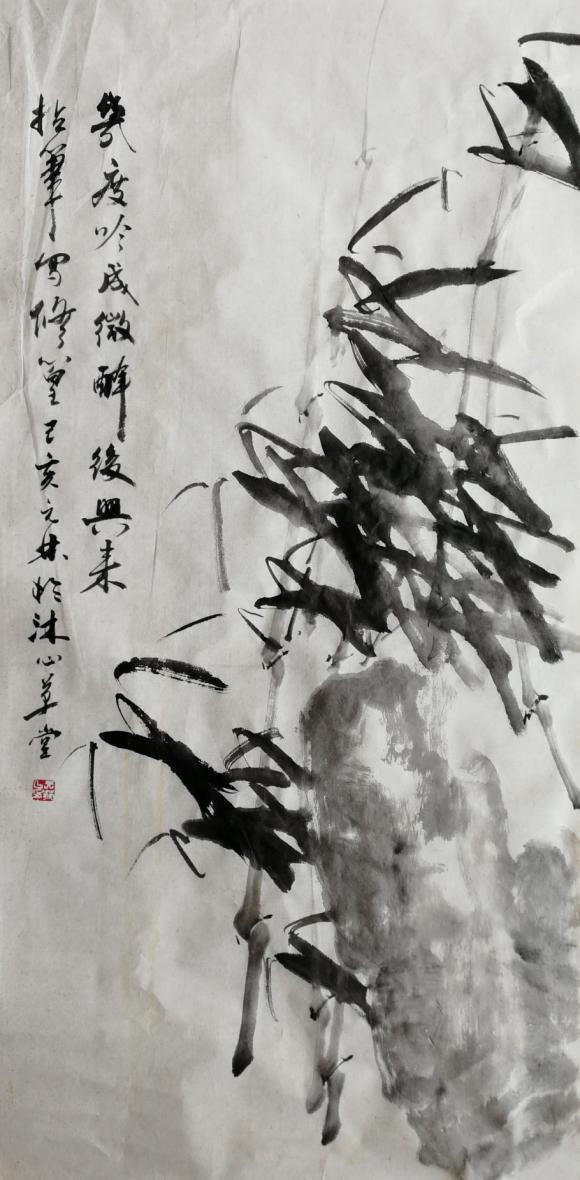 幾度吟成微醉後興来
拈筆寫修篁己亥元林於沐心草堂